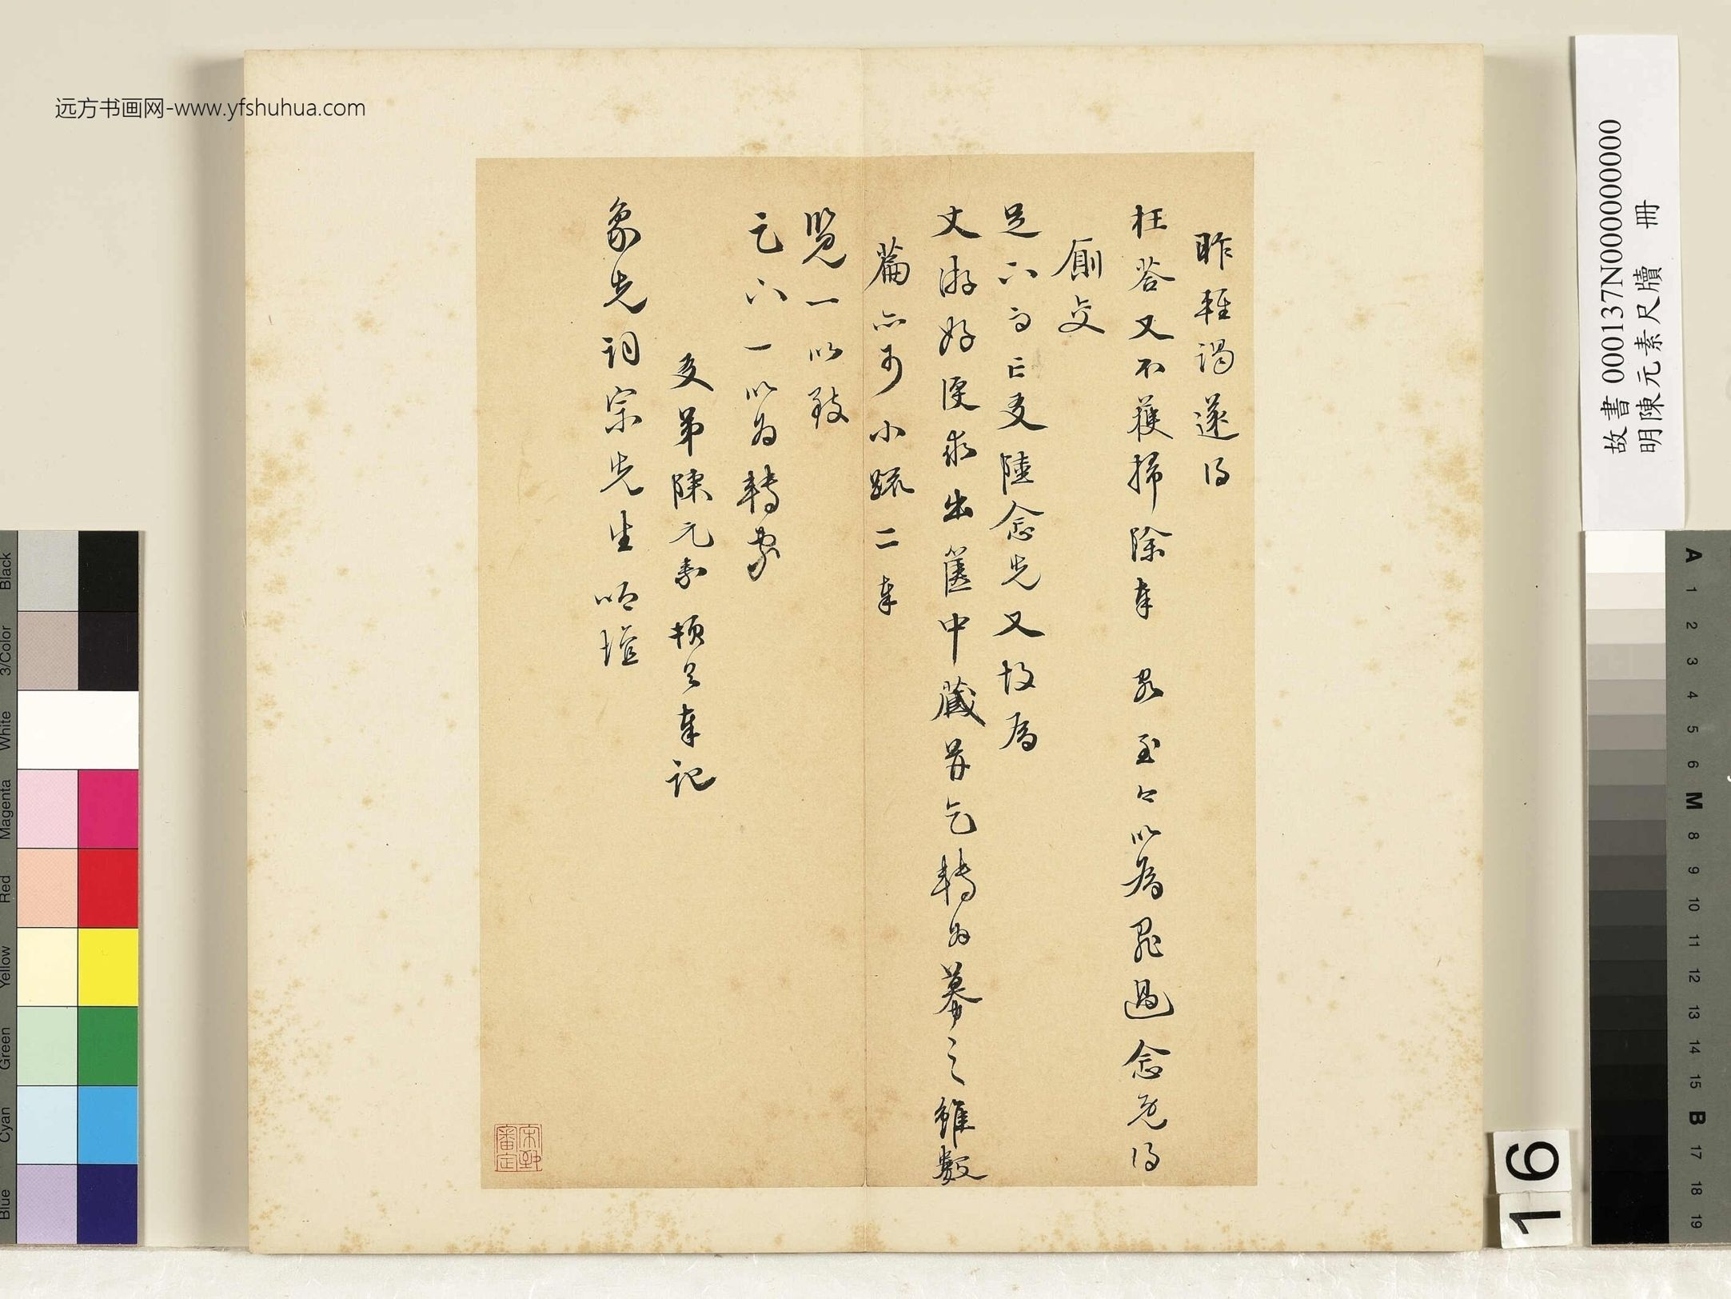 昨輕謁遂得
枉答又不獲掃除奉
至々以為罪過念先得
廁交
足下而亡友陸念先又故為
文游好便求出篋中藏并乞轉為摹之雖數
篇亦可小疏二奉
覽一以致
足下一以為轉家
友弟陳元素頓首奉記
象先詞宗先生吟壇
远方书画网-www.yfshuhua.com
故書 000137N000000000
明陳元素尺牘 冊
16
Black
3/Color
White
Magenta
Red
Yellow
Green
Cyan
Blue
A
1
2
3
4
5
6
M
8
9
10
11
12
13
14
15
B
17
18
19